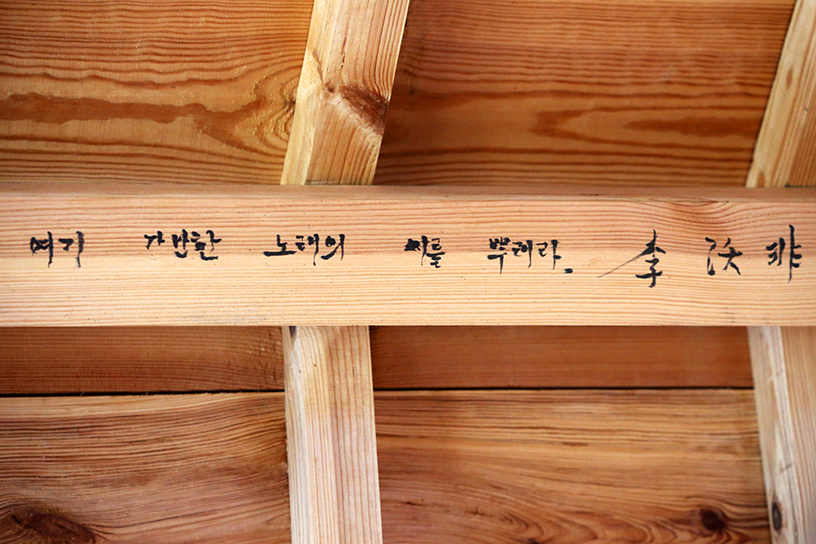 여기 가난한 노래의 씨를 뿌려라. 李沃非